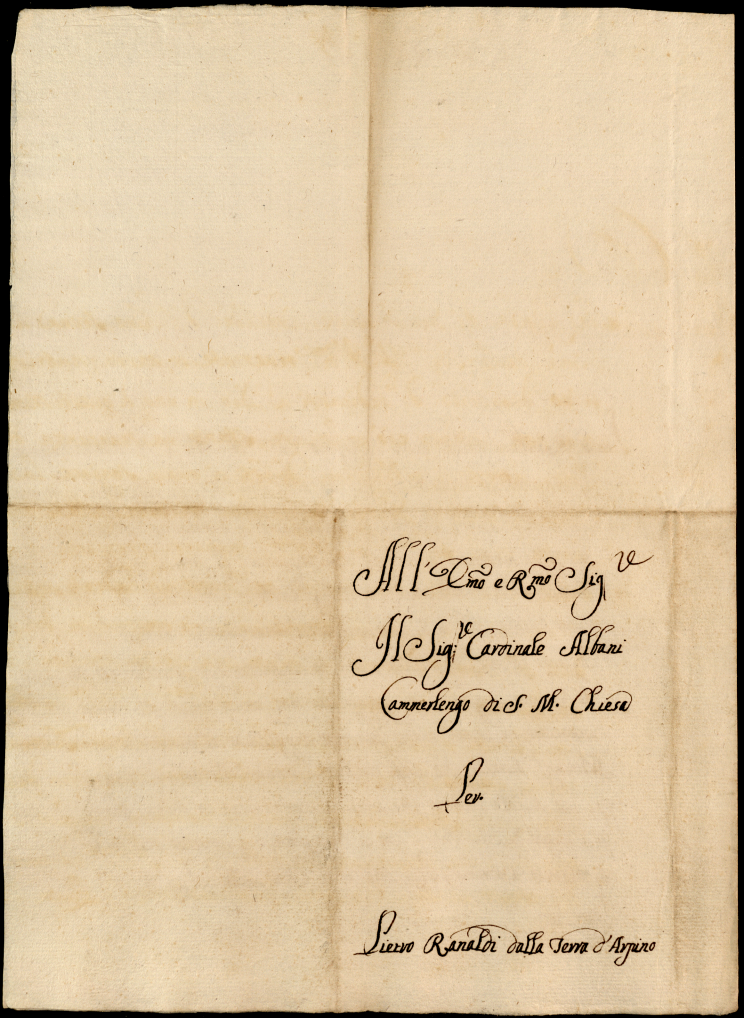 All' Emo e Rmo Sigre
Il Sigre Cardinale Albani
Camerlengo di S. M. Chiesa
Per
Pietro Ranaldi dalla Terra d'Arpino